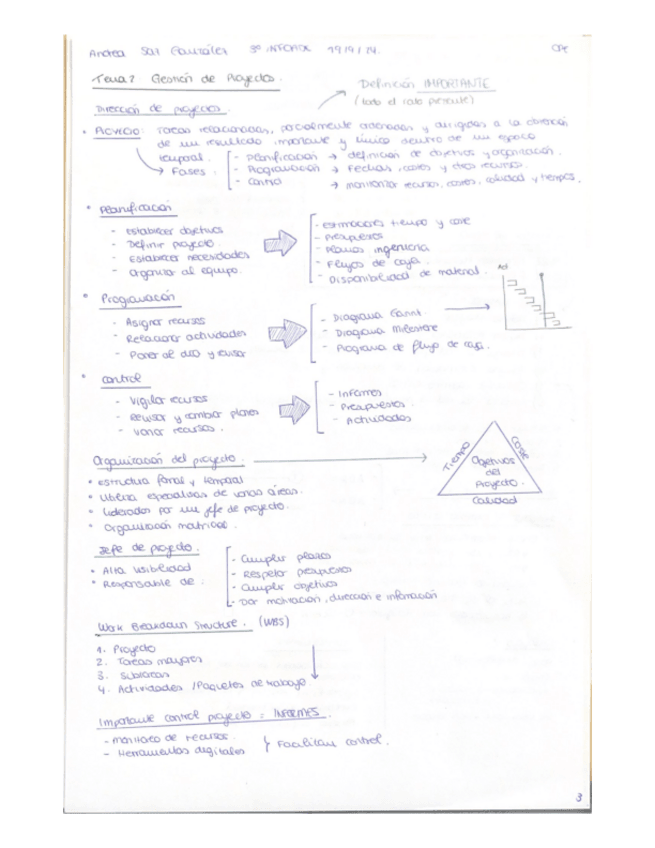 Andrea Saz González 3º INFOADE 19/9/24. OPE
Tema 7 Gestión de Proyectos.
Definición IMPORTANTE
(todo el rato presente)
Dirección de proyectos.
• PROYECTO: Tareas relacionadas, parcialmente ordenadas y dirigidas a la obtención
de un resultado importante y único dentro de un espacio
temporal.
→ Fases.
- Planificación → definición de objetivos y organización.
- Programación → Fechas, costes y otros recursos.
- Control → monitorizar recursos, costes, calidad y tiempos.
• Planificación
- Establecer objetivos
- Definir proyecto.
- Establecer necesidades
- Organizar al equipo.
- estimaciones tiempo y coste
- Presupuestos
- Planos ingeniería
- Flujos de caja.
- Disponibilidad de material.
• Programación
- Asignar recursos
- Relacionar actividades
- Poner al día y revisar
- Diagrama Gantt.
- Diagrama Milestone
- Programa de flujo de caja.
Act
• Control
- Vigilar recursos
- Revisar y cambiar planes
- Variar recursos.
- Informes
- Presupuestos.
- Actividades
Organización del proyecto.
• estructura formal y temporal
• Utiliza especialistas de varias áreas.
• Liderados por un jefe de proyecto.
• Organización matricial.
Tiempo
Coste
Objetivos
del
Proyecto.
Calidad
Jefe de proyecto.
• Alta visibilidad
• Responsable de:
- Cumplir plazos
- Respetar presupuestos
- Cumplir objetivos
- Dar motivación, dirección e información
Work Breakdown Structure. (WBS)
1. Proyecto
2. Tareas mayores
3. Subtareas
4. Actividades / Paquetes de trabajo
Importante control proyecto = INFORMES.
- Monitoreo de recursos.
- Herramientas digitales
} Facilitan control.
3